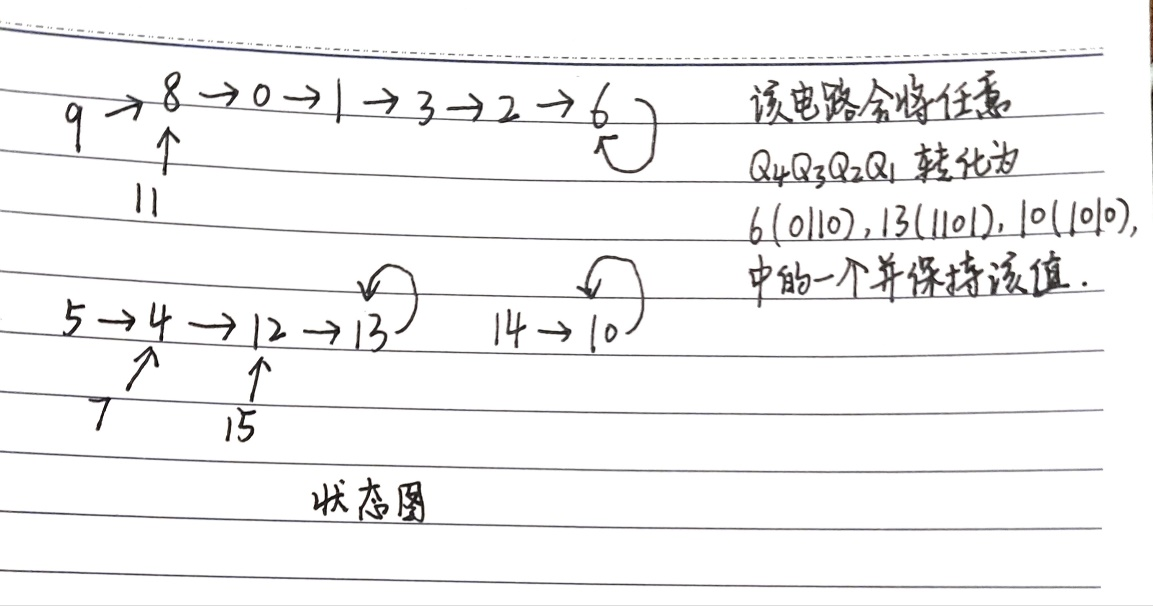 9 → 8 → 0 → 1 → 3 → 2 → 6
11
5 → 4 → 12 → 13
7
15
14 → 10
状态图
该电路会将任意
Q4Q3Q2Q1 转化为
6(0110),13(1101),10(1010),
中的一个并保持该值.